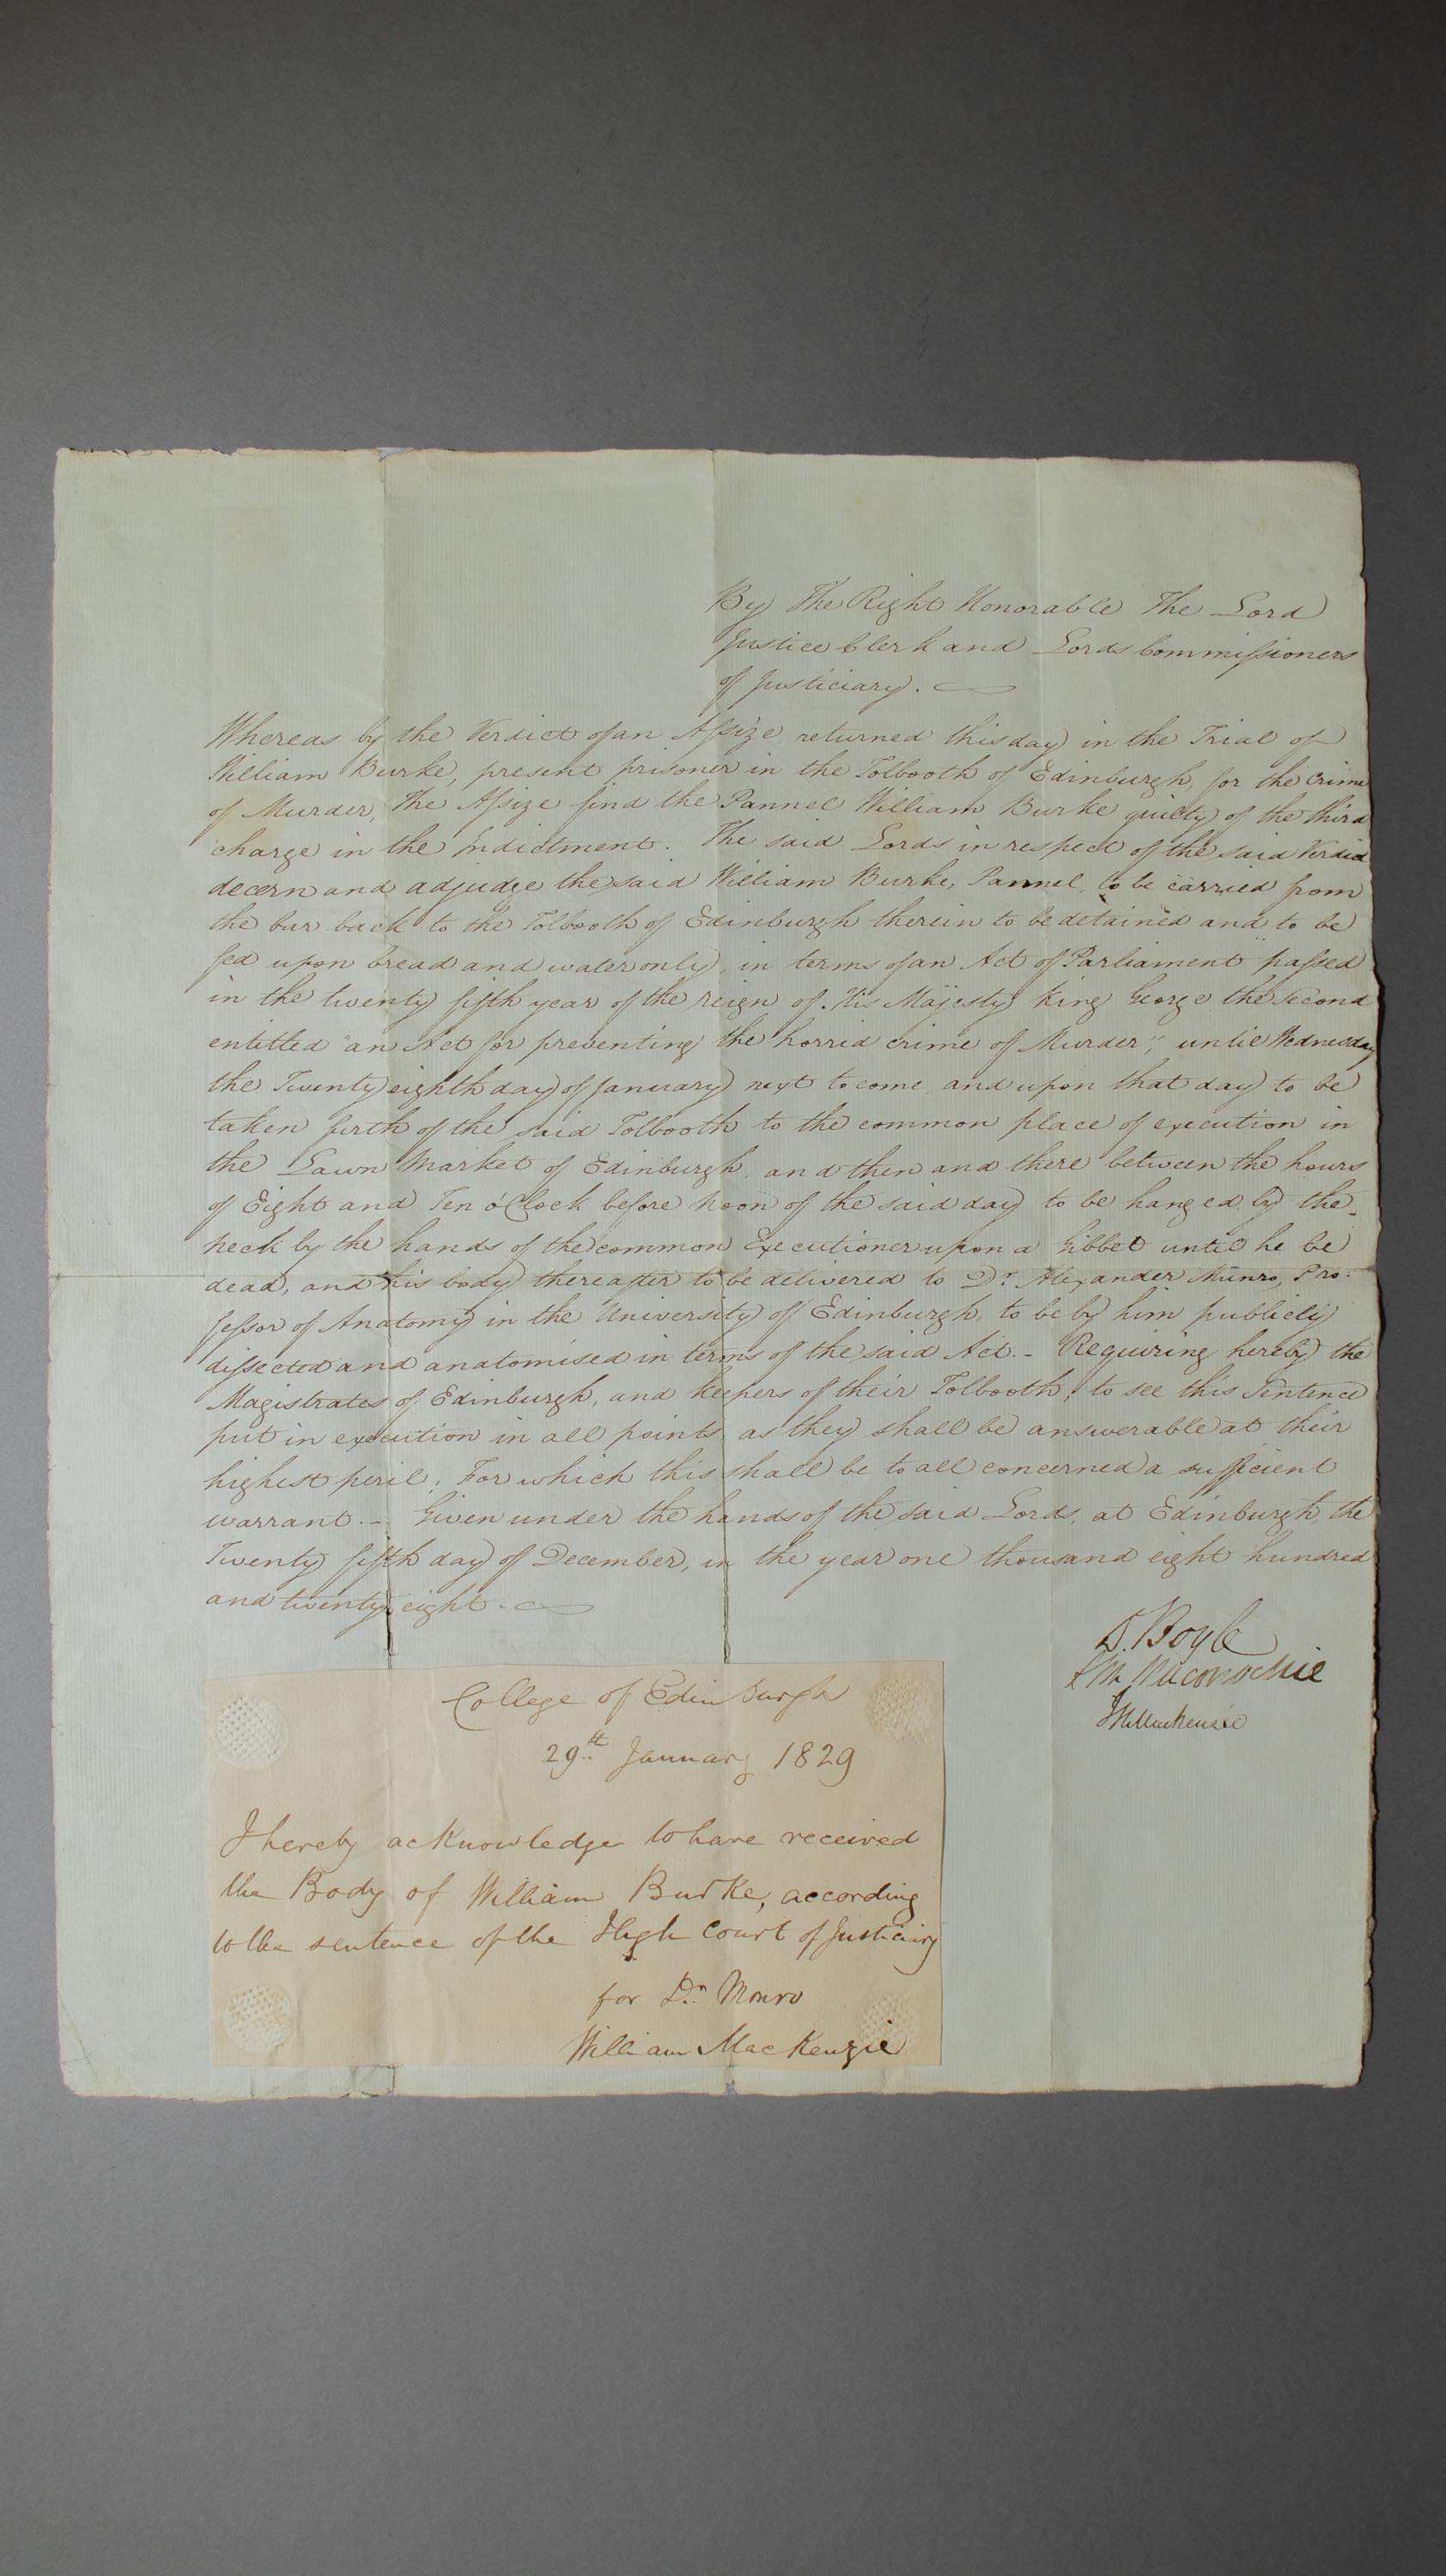 By The Right Honorable The Lord
Justice Clerk and Lords Commissioners
of Justiciary.
Whereas by the Verdict of an Assize returned this day in the Trial of
William Burke, present prisoner in the Tolbooth of Edinburgh, for the crime
of Murder, The Assize find the Pannel William Burke guilty of the third
charge in the Indictment. The said Lords in respect of the said Verdict
decern and adjudge the said William Burke, Pannel, to be carried from
the bar back to the Tolbooth of Edinburgh therein to be detained and to be
fed upon bread and water only, in terms of an Act of Parliament passed
in the twenty fifth year of the reign of His Majesty King George the Second
entitled "an Act for preventing the horrid crime of Murder", until Wednesday
the Twenty eighth day of January next to come and upon that day to be
taken furth of the said Tolbooth to the common place of execution in
the Lawn Market of Edinburgh, and then and there between the hours
of Eight and Ten o'Clock before Noon of the said day to be hanged by the
neck by the hands of the common Executioner upon a Gibbet until he be
dead, and his body thereafter to be delivered to Dr. Alexander Munro, Pro:
fessor of Anatomy in the University of Edinburgh, to be by him publicly
dissected and anatomised in terms of the said Act. - Requiring hereby the
Magistrates of Edinburgh, and Keepers of their Tolbooth, to see this Sentence
put in execution in all points as they shall be answerable at their
highest peril; For which this shall be to all concerned a sufficient
warrant. - Given under the hands of the said Lords, at Edinburgh, the
Twenty fifth day of December, in the year one thousand eight hundred
and twenty eight.
D. Boyle
Maconochie
JHMackenzie
College of Edinburgh
29.th January 1829
I hereby acknowledge to have received
the Body of William Burke, according
to the sentence of the High Court of Justiciary
for Dr. Monro
William MacKenzie